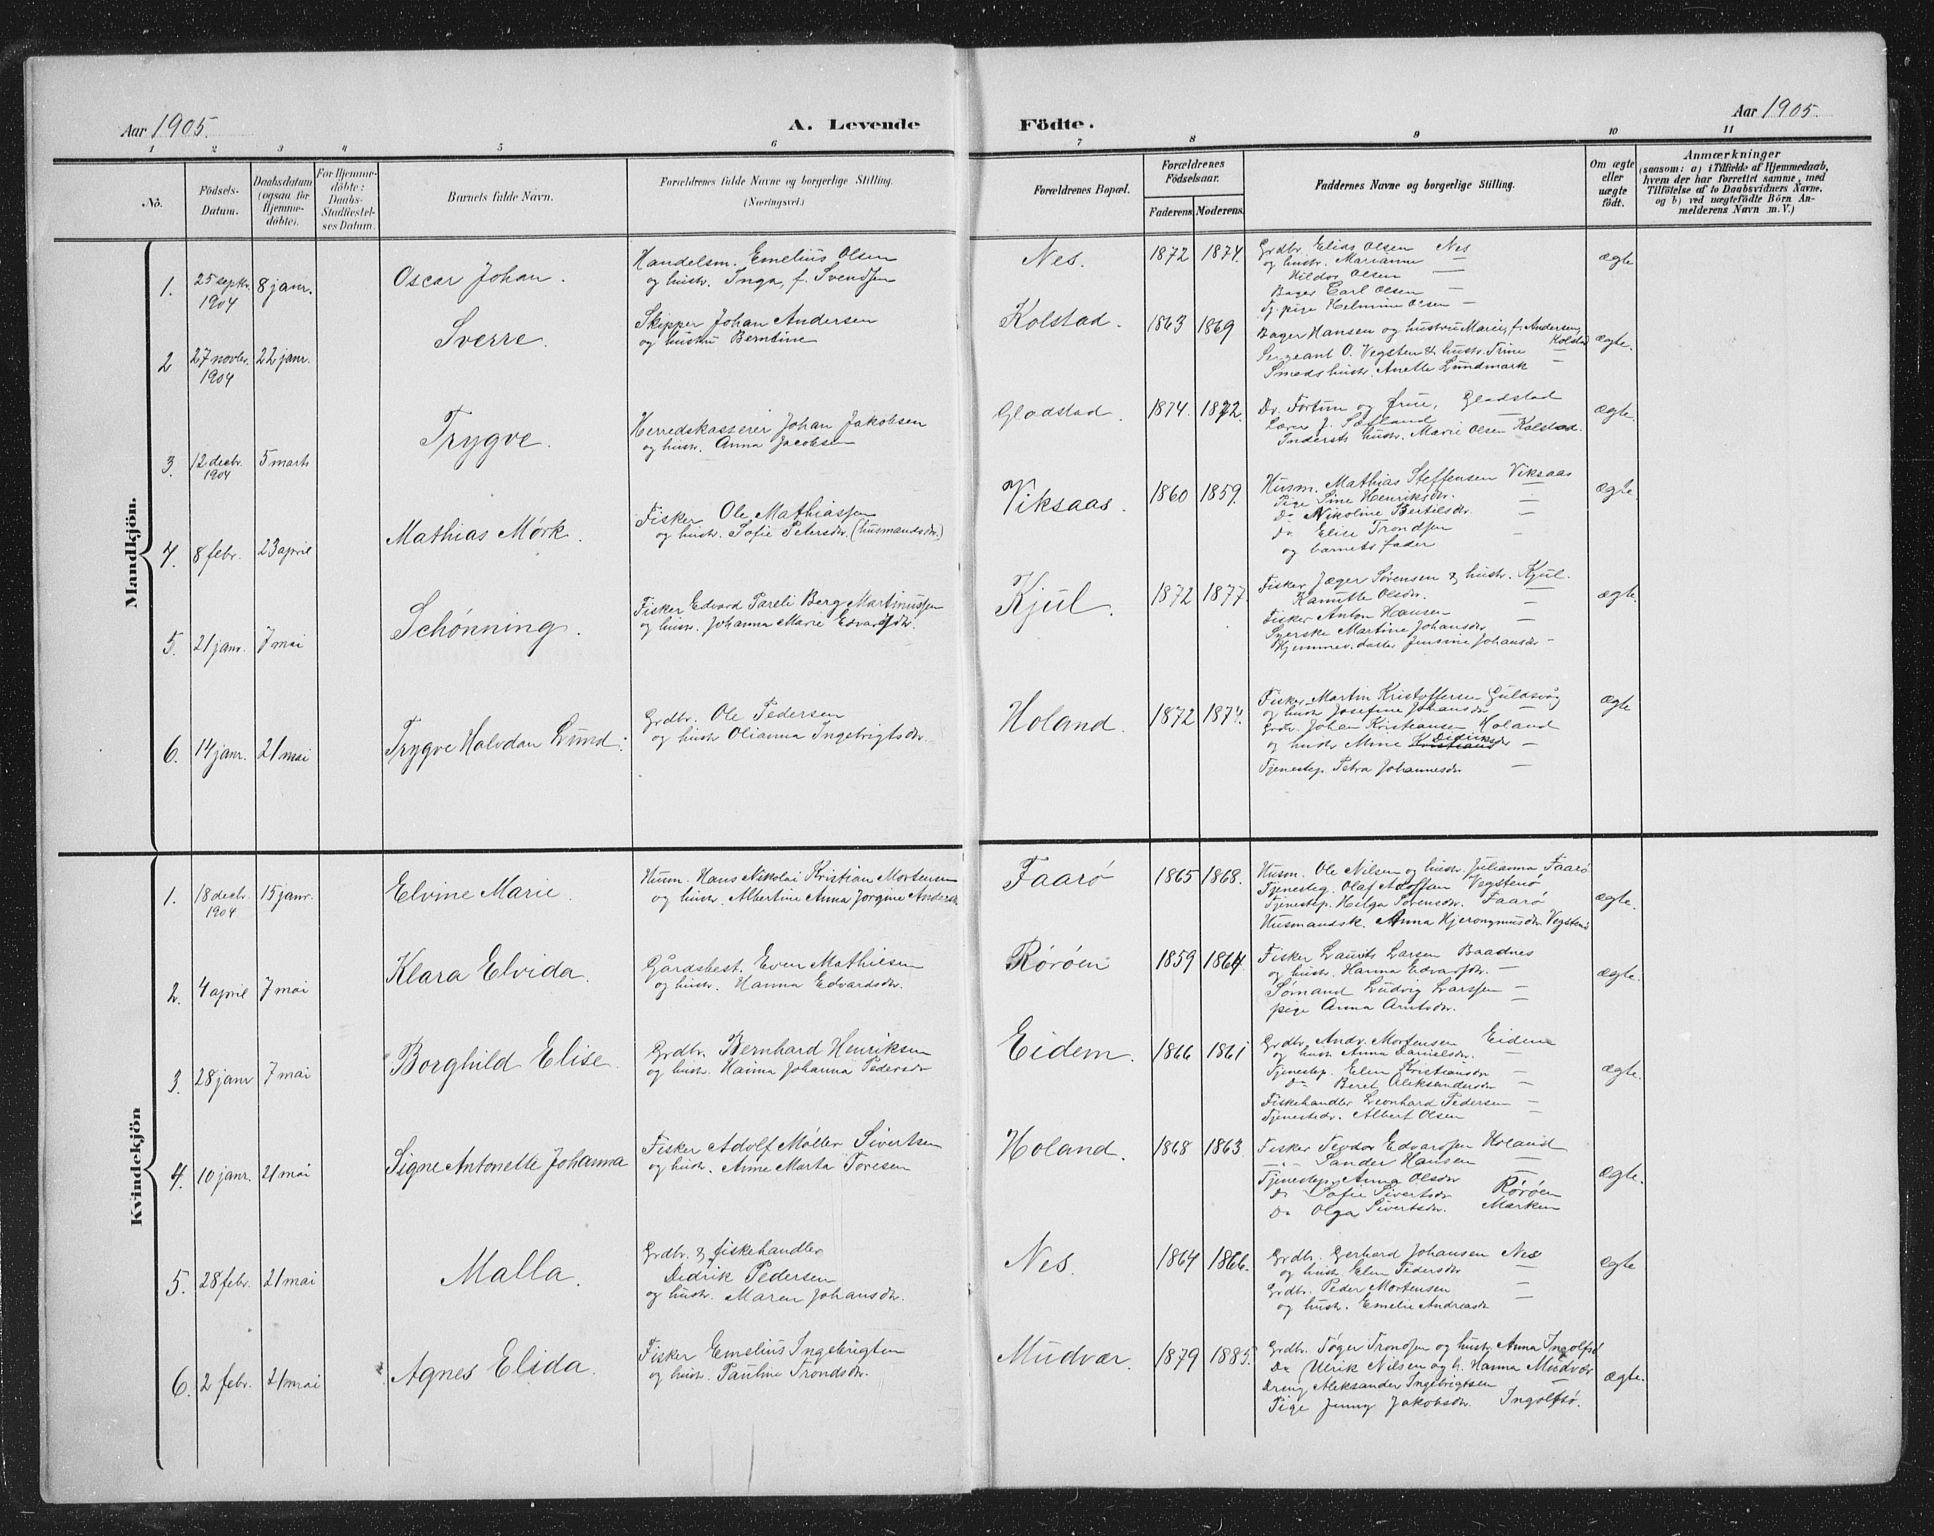 Aar 1905.
A. Levende Födte.
Aar 1905.
1 2 3 4 5 6 7 8 9 10 11
No.
Födsels-Datum.
Daabsdatum (ogsaa for Hjemmedöbte).
For Hjemmedöbte: Daabs-Stadfæstelses Datum.
Barnets fulde Navn.
Forældrenes fulde Navne og borgerlige Stilling.
(Næringsvei.)
Forældrenes Bopæl.
Forældrenes Födselsaar.
Faderens. Moderens.
Faddernes Navne og borgerlige Stilling.
Om ægte eller uægte födt.
Anmærkninger
(saasom: a) i Tilfælde af Hjemmedaab, hvem der har forrettet samme, med Tilföielse af to Daabsvidners Navne, og b) ved uægtefödte Börn Anmelderens Navn m. V.)
Mandkjön.
1. 25 septbr. 1904 8 janr. Oscar Johan.
Handelsm. Emelius Olsen
og hustr. Inga, f. Svendsen
Nes. 1872 1874.
Grdbr. Elias Olsen Nes
og hustr. Marianne —
Hildor Olsen —
Bager Carl Olsen —
Tj. pige Helmine Olsen —
ægte
2 27 novbr. 1904 22 janr. Sverre.
Skipper Johan Andersen
og hustru Berntine
Kolstad. 1863 1869
Bager Hansen og hustru Marie, f. Andersen, Kolstad
Sergeant O. Vegsten & hustr. Trine —
Smeds hustr. Anette Lundmark
ægte.
3. 12 decbr. 1904 5 marts Trygve.
Herredskasserer Johan Jakobsen
og hustr. Anna Jacobsen
Gladstad. 1874. 1872.
Dr. Fortun og Frue, Gladstad
Lærer J. Sæfland —
Indersts hustr. Marie Olsen Kolstad.
ægte.
4. 8 febr. 23 april Mathias Mørk.
Fisker Ole Mathiassen
og hustr. Sofie Petersdr. (husmandsdr.)
Viksaas. 1860 1859.
Husm. Mathias Steffensen Viksaas
Pige Sine Henriksdr. —
Do Nikoline Bertelsdr. —
Do Elise Trondsen —
og barnets fader
ægte.
5. 21 janr. 7 mai Schønning.
Fisker Edvard Pareli Berg Martinussen
og hustr. Johanna Marie Edvardsdr.
Kjul. 1872 1877.
Fisker Jæger Sørensen & hustr. Kjul.
Hanutte Olsdr. —
Fisker Anton Hansen —
Syerske Martine Johansdr —
Hjemmev. datter Jensine Johansdr —
ægte.
6. 14 janr. 21 mai Trygve Halvdan Lund.
Grdbr. Ole Pedersen
og hustr Olianna Ingebrigtsdr.
Holand. 1872 1874.
Fisker Martin Kristoffersen Guldsvåg
og hustr Josefine Johansdr —
Grdr. Johan Kristiansen Holand
og hustr Mine Kristians Didriksdr —
Tjenestep. Petra Johannesdr —
ægte
Kvindekjön
1. 18 decbr. 1904. 15 janr. Elvine Marie.
Husm. Hans Nikolai Kristian Mortensen
og hustr. Albertine Anna Jorgine Andersdr
Faarø 1865 1868.
Husm. Ole Nilsen og hustr. Julianna Faarø
Tjenesteg. Olaf Adolfsen Vegstenø
Tjenestep. Helga Sørensdr. Faarø
Husmandsk. Anna Hjeronymusdr. Vegstenø
ægte.
2. 4 april 7 mai Klara Elvida.
Gårdsbest. Even Mathiesen
og hustr. Hanna Edvardsdr.
Rørøen 1859 1864.
Fisker Laurits Larsen Baadnes
og hustr. Hanna Edvardsdr. —
Sømand Ludvig Larssen —
pige Anna Arntsdr. —
ægte.
3. 28 janr 7 mai Borghild Elise.
Grdbr. Bernhard Henriksen
og hustr. Hanna Johanna Pedersdr
Eidem. 1866 1861
Grdbr. Andr. Mortensen Eidem
og hustr Anna Danielsdr. —
Tjenestep. Elen Kristiansdr —
Do Beret Aleksandersdr —
Fiskehandler Leonhard Pedersen —
Tjenestedr. Albert Olsen —
ægte.
4. 10 janr. 21 mai Signe Antonette Johanna
Fisker Adolf Møller Sivertsen
og hustr. Anne Marta Toresen
Holand. 1868 1863.
Fisker Teodor Edvardsen Holand
—"— Sander Hansen —
Tjenestep. Anna Olsdr
Do Sofie Sivertsdr Rørøen
Do Olga Sivertsdr. Marken
ægte.
5. 28 febr. 21 mai Malla.
Grdbr. & fiskehandler
Didrik Pedersen
og hustr. Maren Johansdr.
Nes. 1864 1866.
Grdbr. Gerhard Johansen Nes
og hustr Elen Pedersdr —
Grdbr. Peder Mortensen —
og hustr. Emelie Andreasdr
ægte
6. 2 febr. 21 mai Agnes Elida.
Fisker Emelius Ingebrigten
og hustr. Pauline Trondsdr.
Mudvær. 1879 1885.
Grdbr. Tøger Trondsen og hustr. Anna Ingolfsd
Do Ulrik Nilsen og h. Hanna Mudvær
Dreng Aleksander Ingebrigtsen —
Pige Jenny Jakobsdr. Ingolfsø.
ægte.